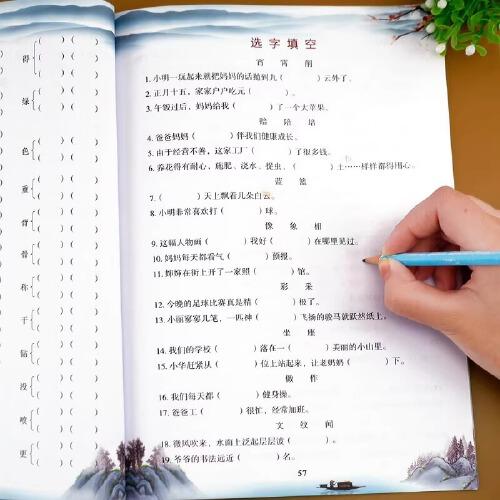 得{( )( )
绿{( )( )
色{( )( )
重{( )( )
背{( )( )
骨{( )( )
称{( )( )
干{( )( )
钻{( )( )
没{( )( )
喷{( )( )
更{( )( )
选字填空
宵 霄 削
1. 小明一玩起来就把妈妈的话抛到九( )云外了。
2. 正月十五，家家户户吃元( )。
3. 午饭过后，妈妈给我( )了一个大苹果。
赔 陪 培
4. 爸爸妈妈( )伴我们健康成长。
5. 由于经营不善，这家工厂( )了很多钱。
6. 养花得有耐心，施肥、浇水、捉虫、( )土……样样都得用心。
蓝 篮
7. ( )天上飘着几朵白云。
8. 小明非常喜欢打( )球。
像 象 相
9. 这幅人物画( )我好( )在哪里见过。
10. 妈妈每天都看气( )预报。
11. 姊姊在街上开了一家照( )馆。
彩 采
12. 今晚的足球比赛真是精( )极了。
13. 小丽寥寥几笔，一匹神( )飞扬的骏马就跃然纸上。
坐 座
14. 我们的学校( )落在一( )美丽的小山里。
15. 小华赶紧从( )位上站起来，让老奶奶( )下。
做 作
16. 我们每天都( )健身操。
17. 爸爸工( )很忙，经常加班。
文 纹 闻
18. 微风吹来，水面上泛起层层波( )。
19. 爷爷的书法远近( )名。
57